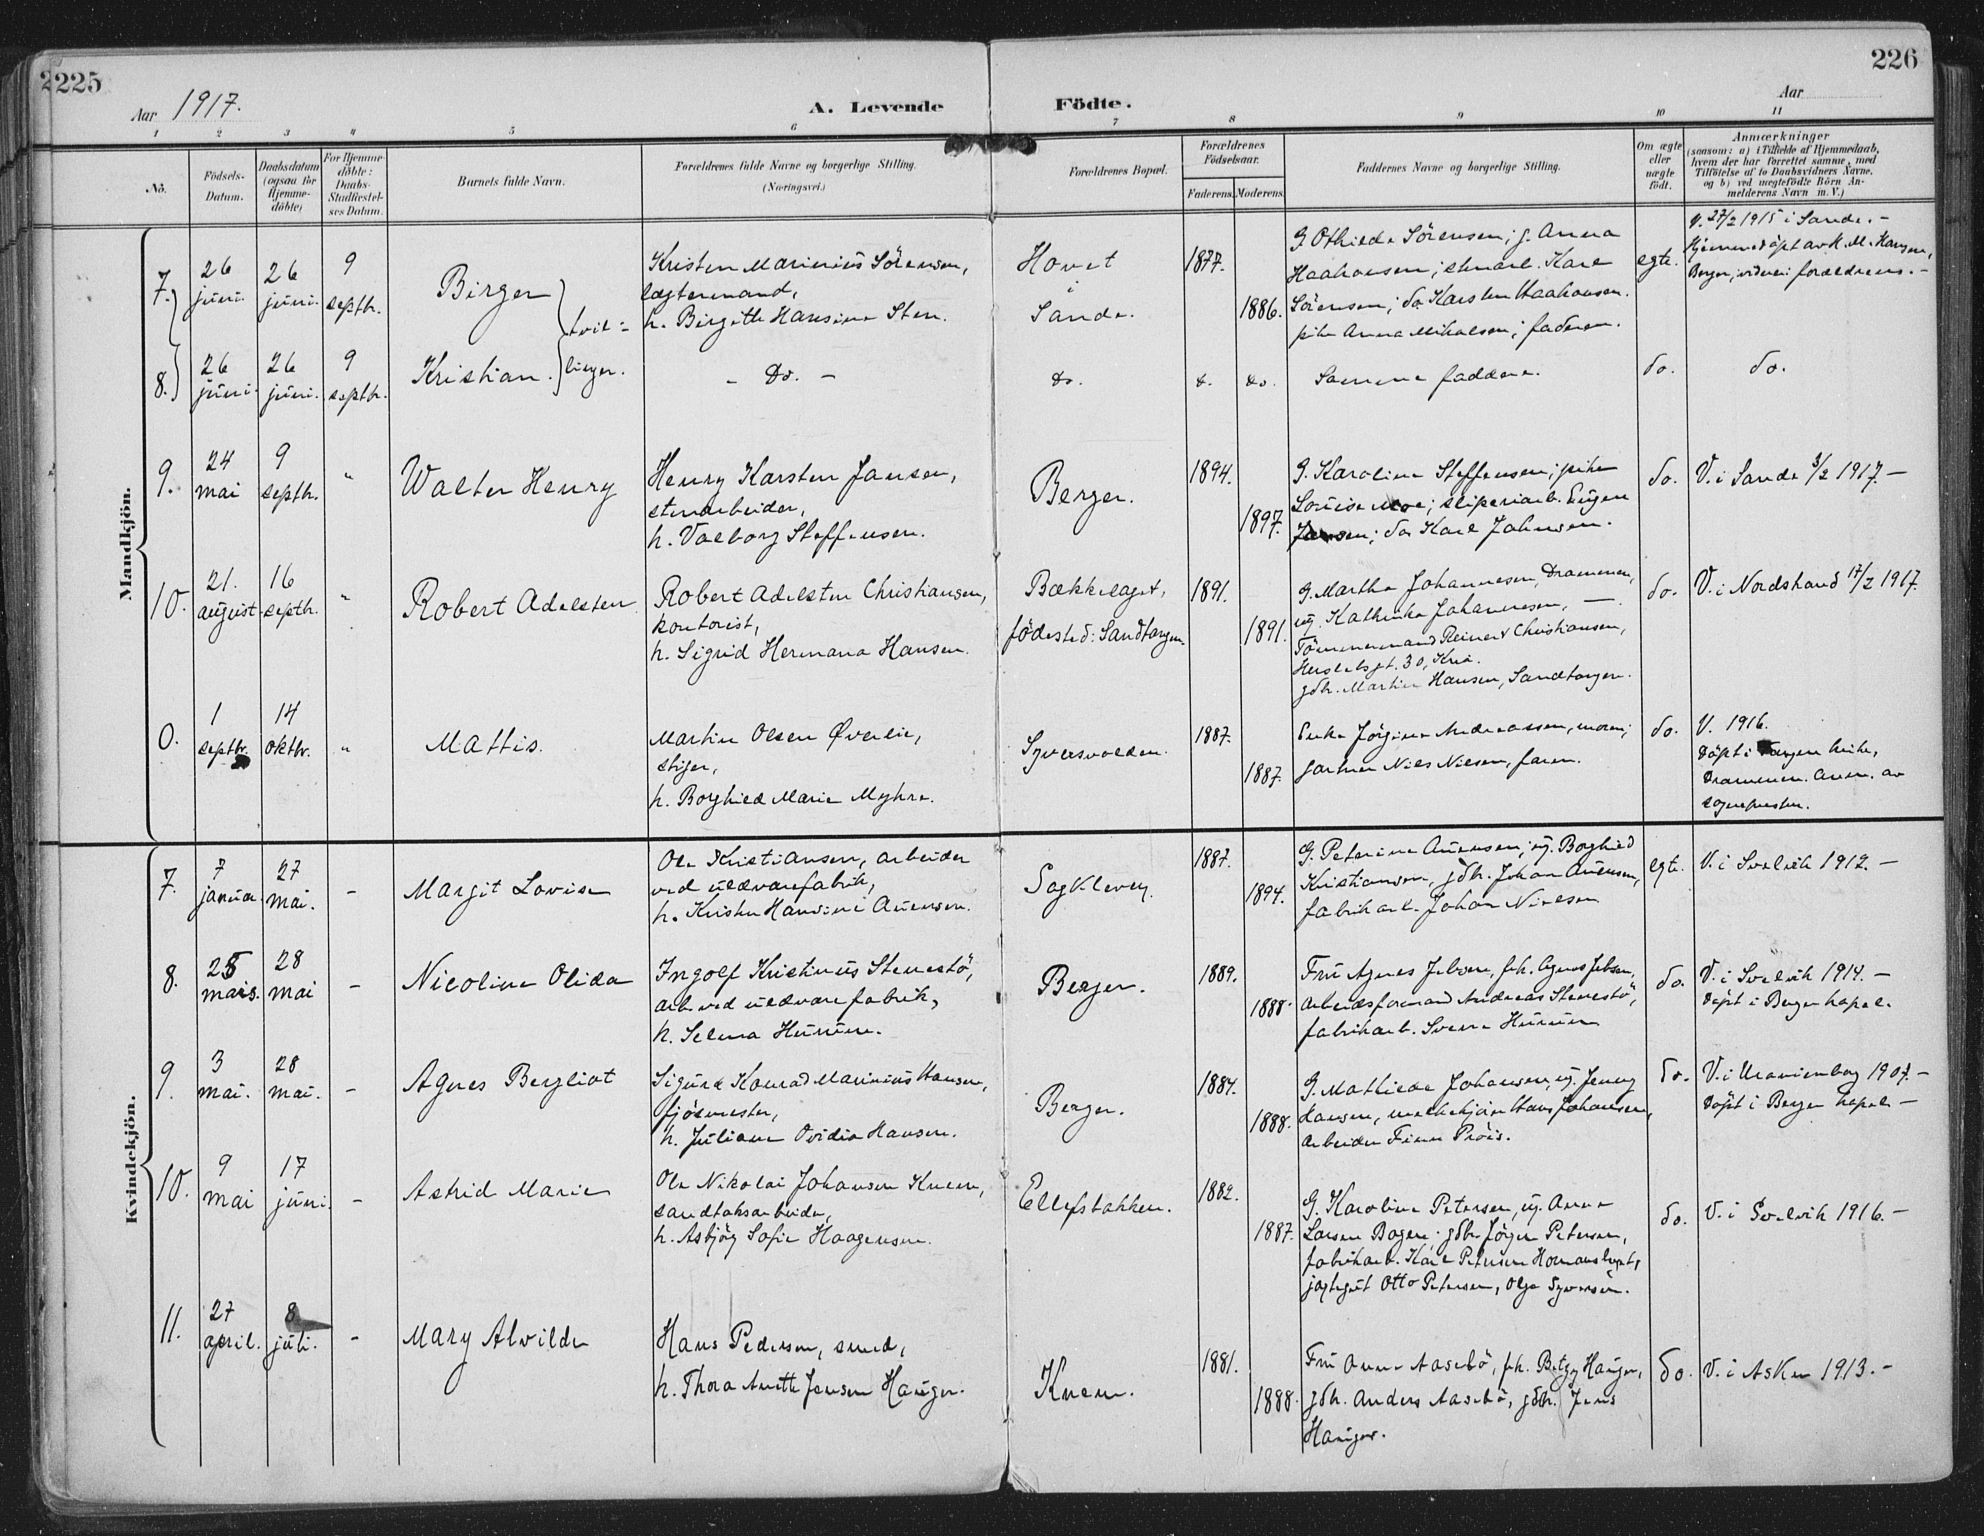 225
226
Aar 1917.
A. Levende Födte.
Aar
1 2 3 4 5 6 7 8 9 10 11
No.
Födsels-Datum.
Daabsdatum (ogsaa for Hjemme-döbte)
For Hjemme-döbte: Daabs-Stadfæstel-ses Datum.
Barnets fulde Navn.
Forældrenes fulde Navne og borgerlige Stilling.
(Næringsvei.)
Forældrenes Bopæl.
Forældrenes Födselsaar.
Faderens. Moderens.
Faddernes Navne og borgerlige Stilling.
Om ægte eller uægte födt.
Anmærkninger
(saasom: a) i Tilfælde af Hjemmedaab,
hvem der har forrettet samme, med
Tilföielse af to Daabsvidners Navne,
og b) ved uægtefödte Börn An-
melderens Navn m. V.)
Mandkjön.
7. 26 juni. 26 juni. 9 septbr. Birger
Kristen Marinius Sörensen,
lægtermand,
h. Birgithe Hansine Sten.
Hovet i Sande.
1877. 1886.
G. Othilde Sörensen; g. Anna
Haakonsen; Karl
Sörensen; do Karsten Haakonsen.
pike Anna Mikalsen; faderen.
egte.
V. 27/2 1915 i Sande.-
Hjemmedöpt av K. M. Hansen,
Berger, forældrene.-
8. 26 juni. 26 juni. 9 septbr. Kristian. tvil-linger.
- Do. - do. do. do. Samme faddere. do. do.
9. 24 mai 9 septbr. " Walter Henry
Henry Karsten Jansen,
stenarbeider,
h. Valborg Steffensen.
Berger.
1894. 1897.
G. Karoline Steffensen; pike
Louise Moe; sliperiarb. Eugen
Jansen; do Karl Johnsen.
do. V. i Sande 3/2 1917.-
10. 21. august 16 septbr. " Robert Adelsten
Robert Adelsten Christiansen,
kontorist,
h. Sigrid Hermana Hansen.
Bækkelaget,
födested: Sandtangen.
1891. 1891.
G. Martha Johannesen, Drammen,
ug. Kathinka Johannesen, —.
Tömmermand Reinert Christiansen,
Herslebsgt. 30, Kria.
gdbr. Martin Hansen, Sandtangen.
do. V. i Nordstrand 17/2 1917.
0. 1 septbr. 14 oktbr. " Mattis.
Martin Olsen Øverlie,
stiger,
h. Borghild Marie Myhre.
Syversvolden.
1887. 1887.
Enke Jörgine Andreassen, moren;
gartner Nils Nilsen, faren.
do. V. 1916.
Döpt i Tangen kirke,
Drammen. Anm. av
sogneprsten.
Kvindekjön.
7. 7 januar 27 mai. - Margit Lovise
Ole Kristiansen, arbeider
ved uldvarefabrik,
h. Kristen Hansine Auensen.
Sagkleven.
1887. 1894.
G. Peterine Auensen; ug. Borghild
Kristiansen, gdbr. Johan Auensen,
fabrikarb. Johan Nielsen
egte. V. i Svelvik 1912.-
8. 25 mars. 28 mai - Nicoline Olida
Ingolf Kristinius Stenestö,
arb. ved uldvarefabrik,
h. Selma Hunum.
Berger.
1889. 1888.
Fru Agnes Jebsen, frk. Agnes Jebsen,
Arbeidsformand Andreas Stenestö,
fabrikarb. Sverre Hunum
do. V. i Svelvik 1914.-
Döpt i Berger kapel.
9. 3 mai. 28 mai. - Agnes Bergliot
Sigurd Konrad Marinius Hansen,
fjösmester,
h. Juliane Ovidia Hansen.
Berger.
1884. 1888.
G. Mathilde Johansen, ug. Jenny
Hansen, melkekjörer Hans Johansen,
Arbeider Finn Pröis.
do. V. i Uranienborg 1907.-
Döpt i Berger kapel -
10. 9 mai 17 juni. - Astrid Marie
Ole Nikolai Johansen Knem,
sandtaksarbeider,
h. Asbjörg Sofie Haagensen.
Ellefsbakken.
1882. 1887.
G. Karoline Petersen, ug. Anna
Larsen Bagen. gdbr. Jörgen Petersen,
fabrikarb. Karl Petersen
Otto Petersen, Olga Syversen.
do. V. i Svelvik 1916.-
11. 27 april. 8 juli. - Mary Alvilde
Hans Pedersen, smed,
h. Thora Anette Jensen Hauger.
Knem.
1881. 1888.
Fru Anna Aasebö, frk. Betzy Hauger,
gdbr. Anders Aasebö, gdbr. Jens
Hauger.
do. V. i Asker 1913.-